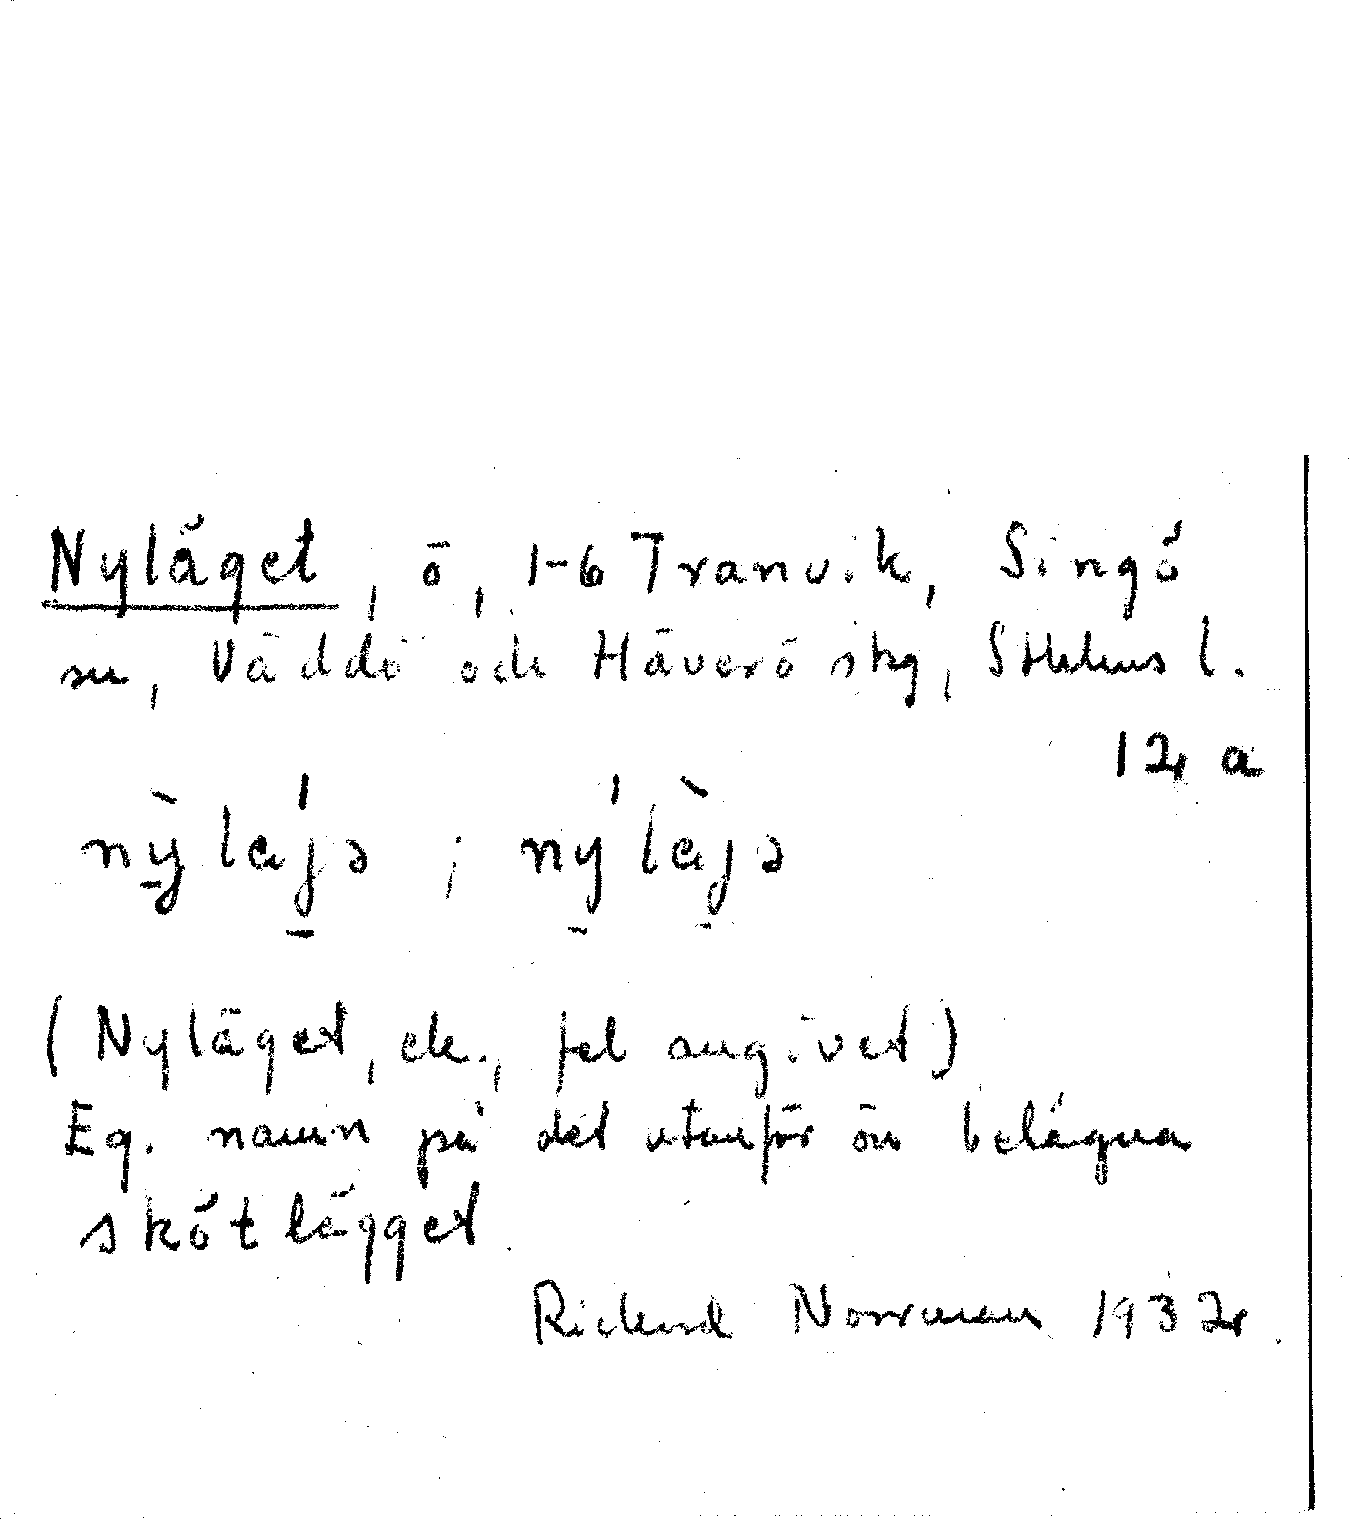 Nyläget, ö, 1-6 Tranvik, Singö
sn, Väddö och Häverö skg, Sthlms l.
12 a
nỳ̱lájə ; nýlàjə
(Nyläget, ek., fel angivet)
Eg. namn på det utanför ön belägna
skötlägget
Rickard Norrman 1932.